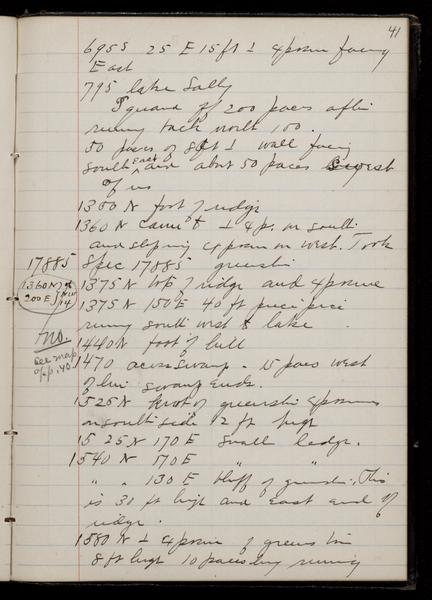 41
695 S 25 E 15 ft ± exposure facing
East
795 lake Sally
Squard of 200 paces after
running back north 100.
50 paces of 8 ft ± wall facing
south East and about 50 paces west
of us
1300 N foot of ridge
1360 N ± on south
and sloping exposure on west. Took
17885 Spec 17885 greenstn
1360 N
200 E
14
1375 N top of ridge and exposure
1375 N 150 E 40 ft precipice
running south west to lake
Ino.
see map
of p. 40
1440 N foot of hill
1470 across swamp - 15 paces west
of line swamp ends.
1525 N knob of greenstn exposures
on south side 12 ft high
1525 N 170 E small ledge.
1540 N 170 E " "
" " 130 E bluff of greenstn. This
is 30 ft high and east end of
ridge.
1580 N ± exposure of greenstn
8 ft high 10 paces long running